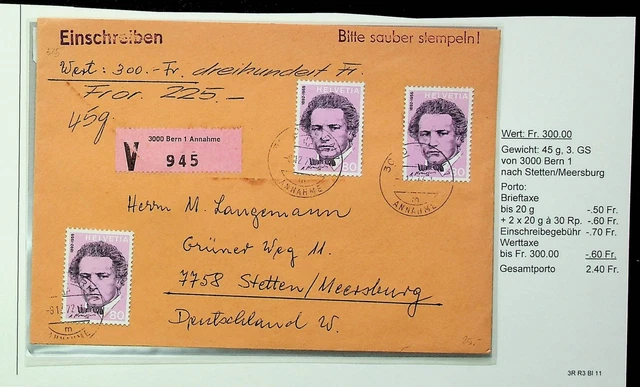 Einschreiben
Bitte sauber stempeln!
Wert: 300.- Fr. dreihundert Fr.
Fror. 225.-
45g
3000 Bern 1 Annahme
V 945
HELVETIA
80
ANNAHME
HELVETIA
80
ANNAHME
Herrn M. Langemann
Grüner Weg 11.
7758 Stetten/Meersburg
Deutschland W.
HELVETIA
80
ANNAHME
Wert: Fr. 300.00
Gewicht: 45 g, 3. GS
von 3000 Bern 1
nach Stetten/Meersburg
Porto:
Brieftaxe
bis 20 g -.50 Fr.
+ 2 x 20 g à 30 Rp. -.60 Fr.
Einschreibegebühr -.70 Fr.
Werttaxe
bis Fr. 300.00 -.60 Fr.
Gesamtporto 2.40 Fr.
3R R3 Bl 11